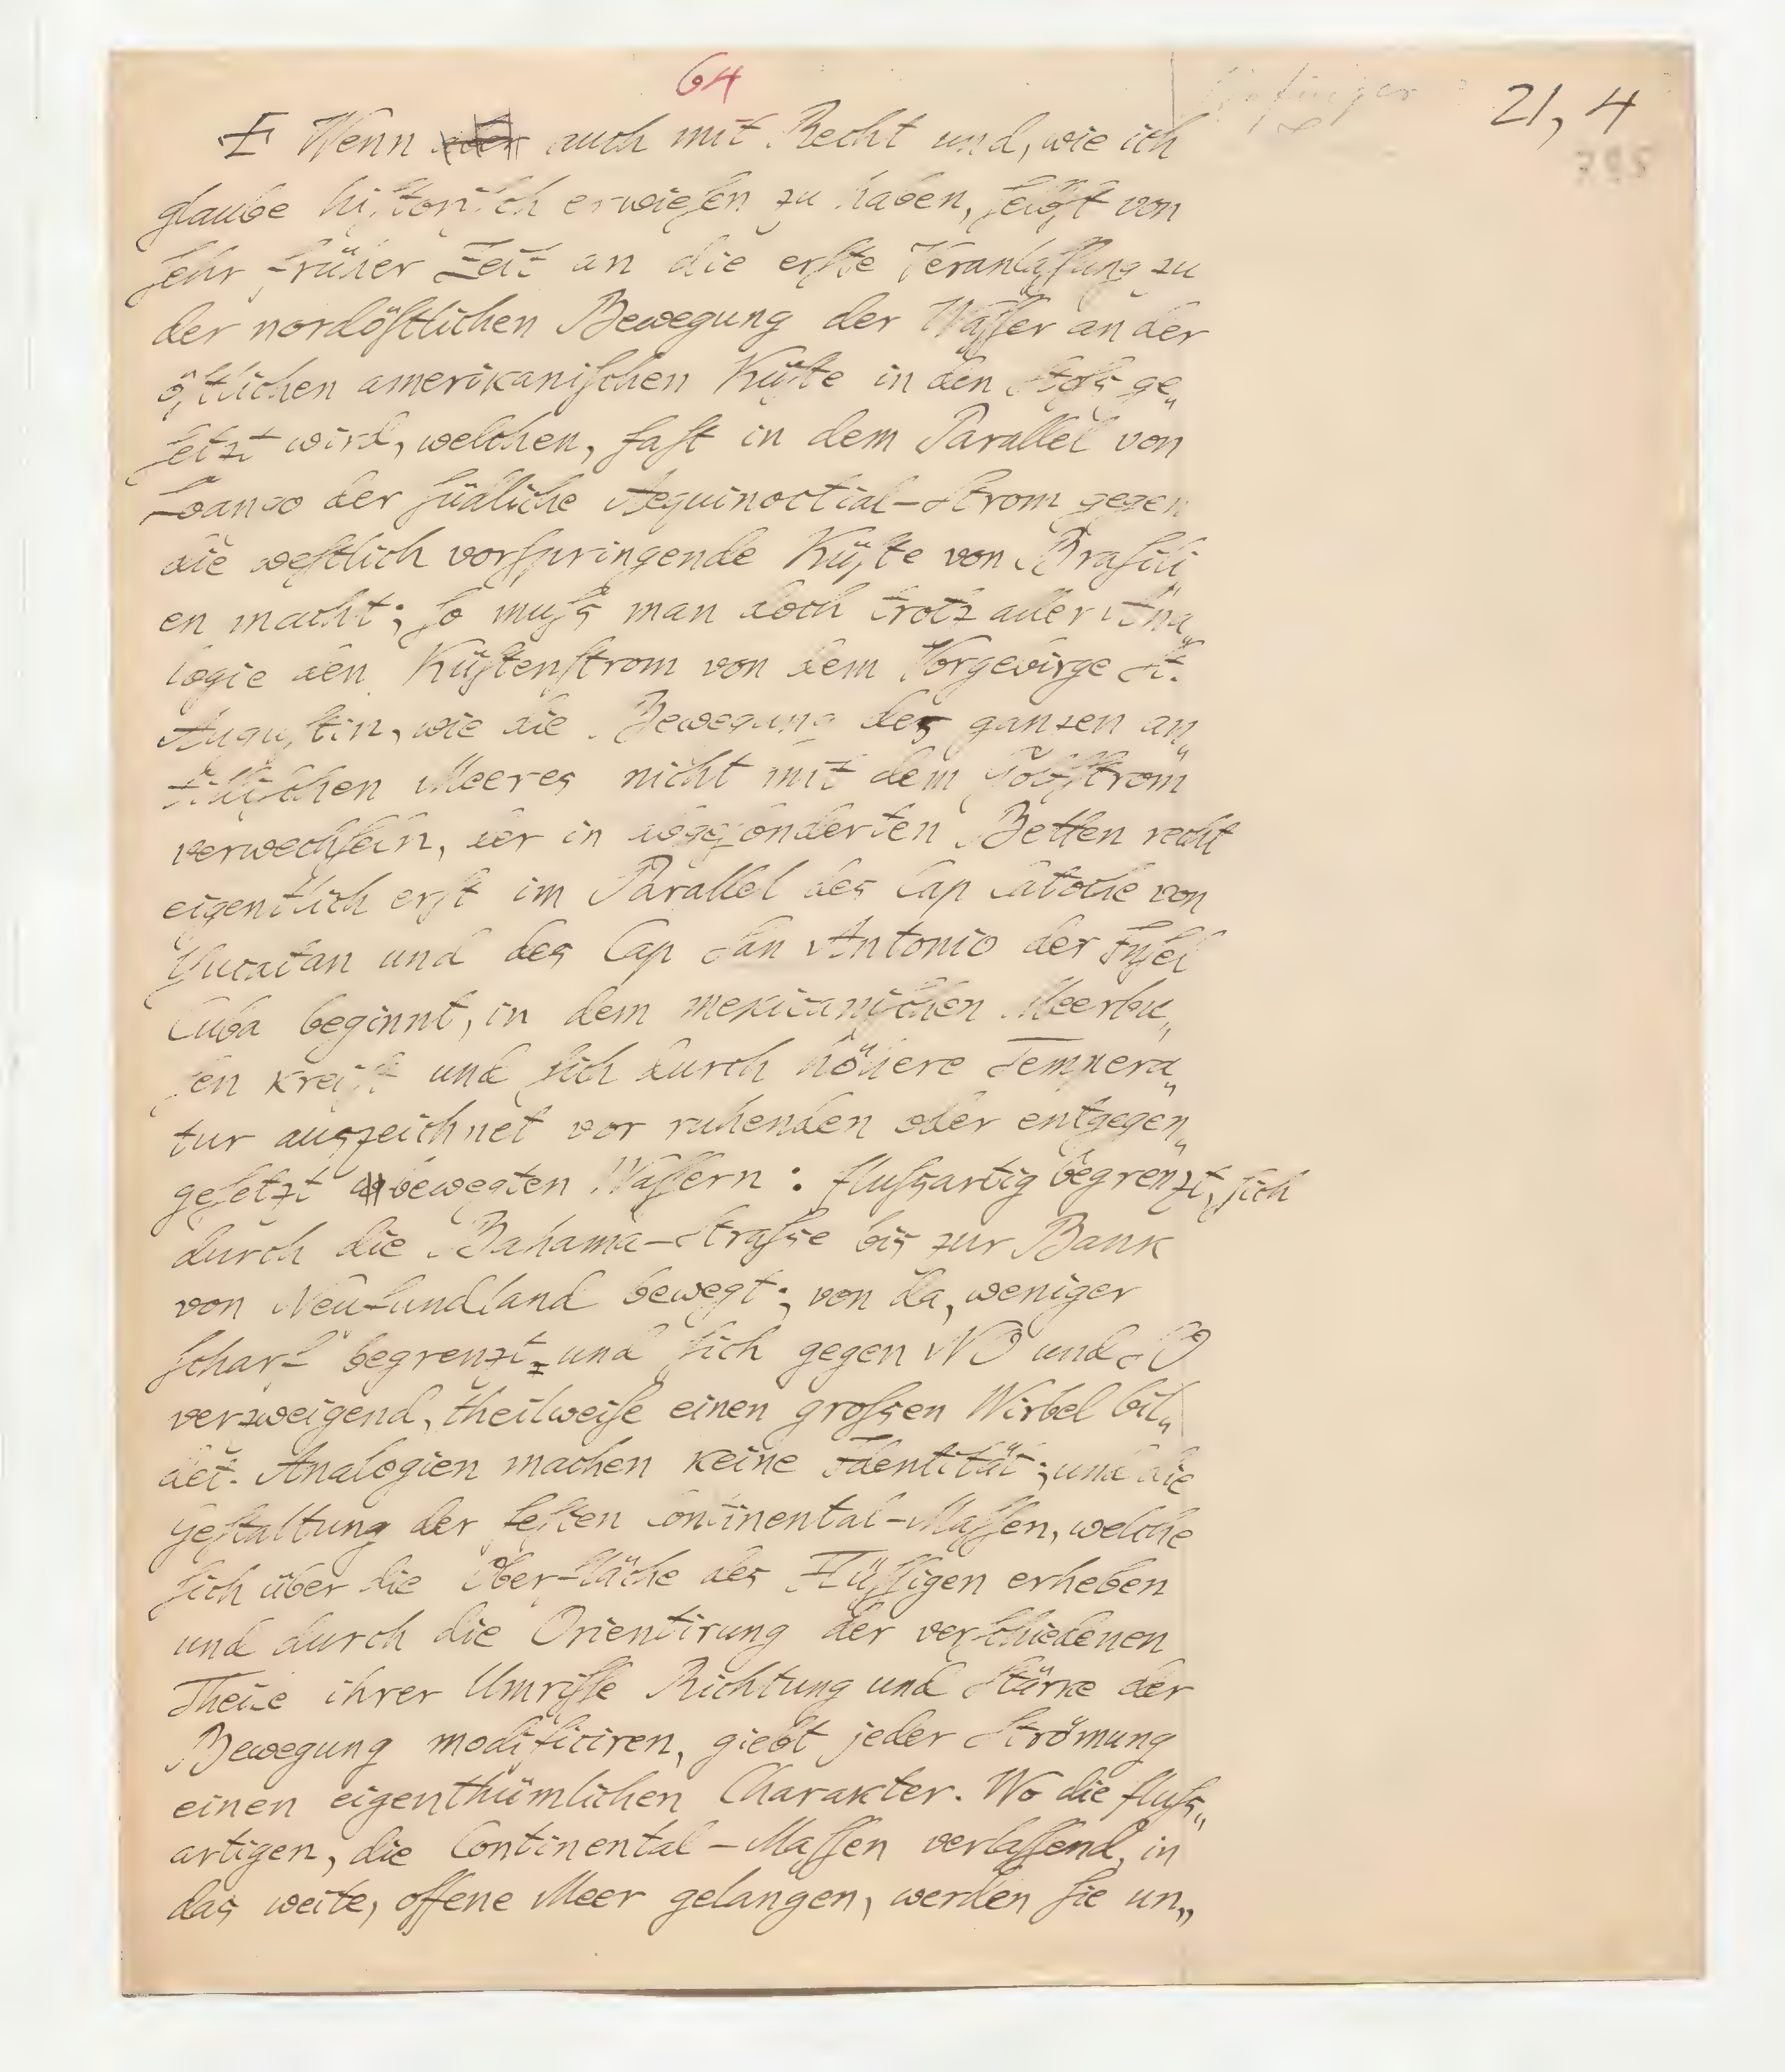 64
21, 4
795
E Wenn aber auch mit Recht und, wie ich
glaube hiſtoriſch erwieſen zu haben, ſelbſt von
ſehr früher Zeit an die erſte Veranlaſſung zu
der nordöſtlichen Bewegung der Waſſer an der
öſtlichen amerikaniſchen Küſte in den Stoſs ge„
ſetzt wird, welchen, faſt in dem Parallel von
Loango der ſüdliche Aequinoctial-Strom gegen
die weſtlich vorſpringende Küſte von Braſili„
en macht; ſo muſs man doch trotz aller Ana„
logie den Küſtenſtrom von dem Vorgebirge St.
Auguſtin, wie die Bewegung des ganzen an„
tilliſchen Meeres nicht mit dem Golfſtrom
verwechſeln, der in abgeſonderten Betten recht
eigentlich erſt im Parallel des Cap Catoche von
Yucatan und des Cap San Antonio der Inſel
Cuba beginnt, in dem mexicaniſchen Meerbu„
ſen kreiſt und ſich durch höhere Tempera„
tur auszeichnet vor ruhenden oder entgegen„
geſetzt bewegten Waſſern: fluſsartig begrenzt, ſich
durch die Bahama-Straſse bis zur Bank
von Neufundland bewegt; von da, weniger
ſcharf begrenzt und ſich gegen NO und SO
verzweigend, theilweiſe einen groſsen Wirbel bil„
det. Analogien machen keine Identität; und die
Geſtaltung der feſten Continental-Maſſen, welche
ſich über die Oberfläche des Flüſſigen erheben
und durch die Orientirung der verſchiedenen
Theile ihrer Umriſſe Richtung und Stärke der
Bewegung modificiren, giebt jeder Strömung
einen eigenthümlichen Charakter. Wo die fluſs„
artigen, die Continental-Maſſen verlaſſend, in
das weite, offene Meer gelangen, werden ſie un„